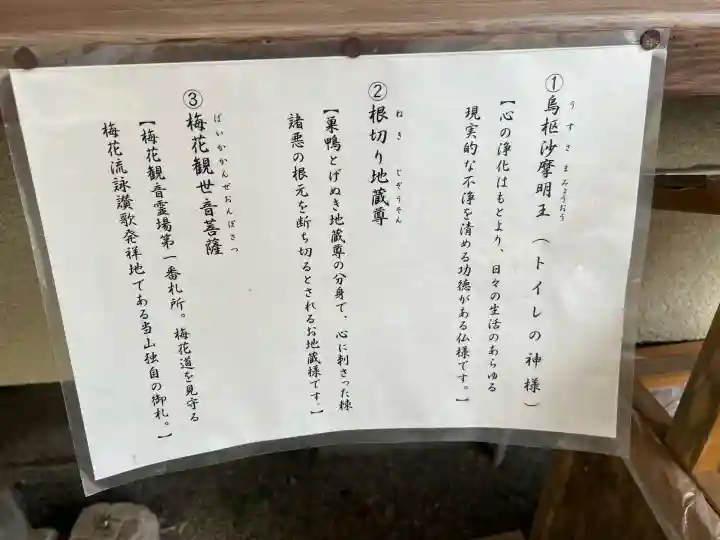 ①烏枢沙摩明王（トイレの神様）
うすさまみょうおう
【心の浄化はもとより、日々の生活のあらゆる
現実的な不浄を清める功徳がある仏様です。】
②根切り地蔵尊
ねき じぞうそん
【巣鴨とげぬき地蔵尊の分身で、心に刺さった棘
諸悪の根元を断ち切るとされるお地蔵様です。】
③梅花観世音菩薩
ばいかかんぜおんぼさつ
【梅花観音霊場第一番札所。梅花道を見守る
梅花流詠讃歌発祥地である当山独自の御札。】